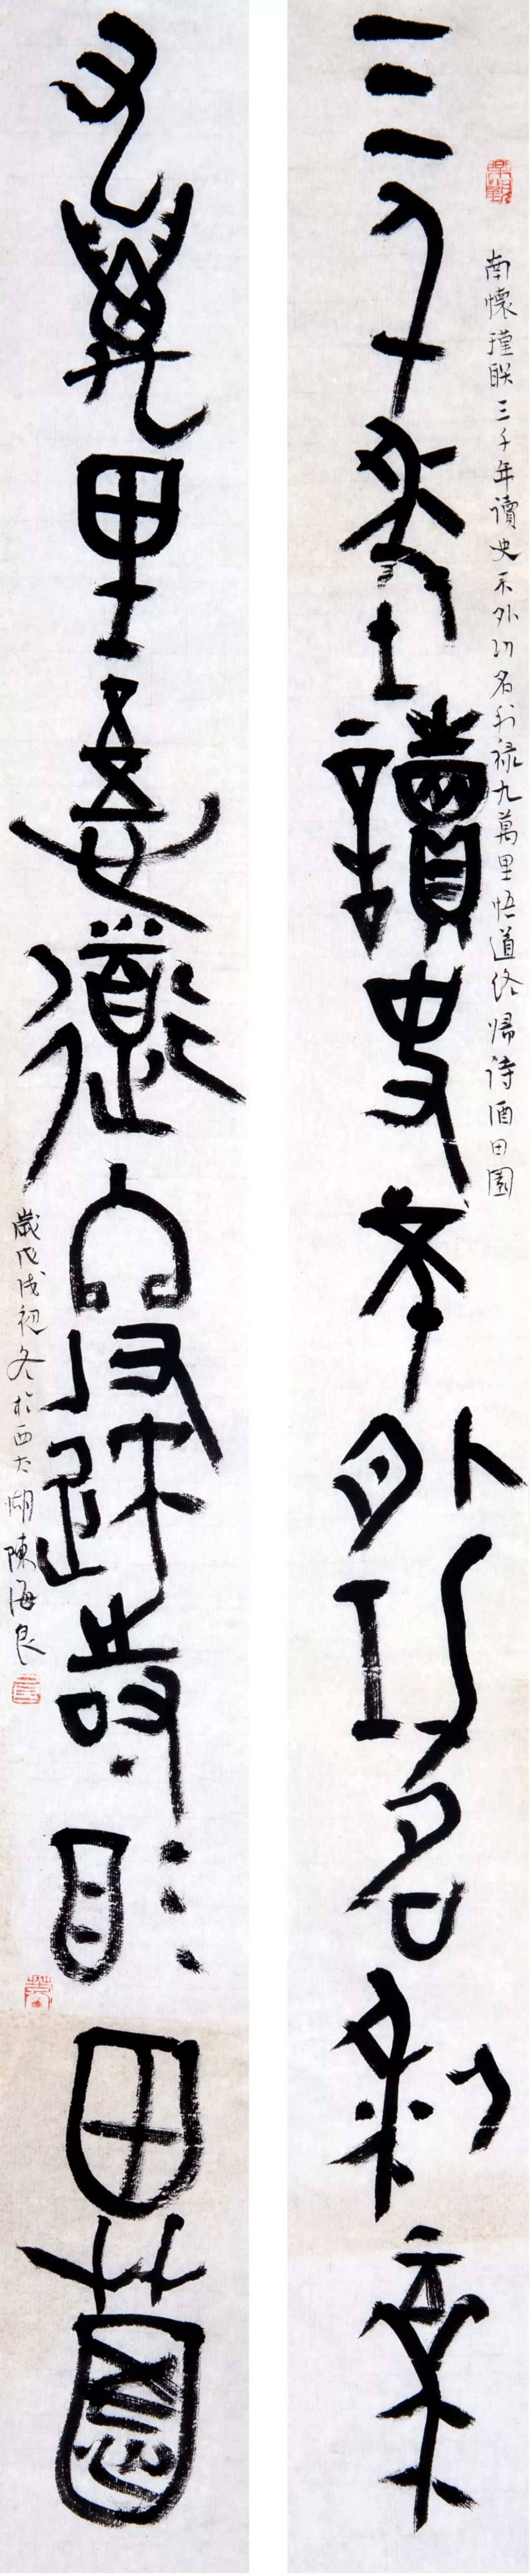 南懷瑾联三千年讀史不外功名利禄九萬里悟道终歸诗酒田園
三千年讀史不外功名利祿
九萬里悟道終歸時酒田園
歲戊戌初冬於西太湖陳海良